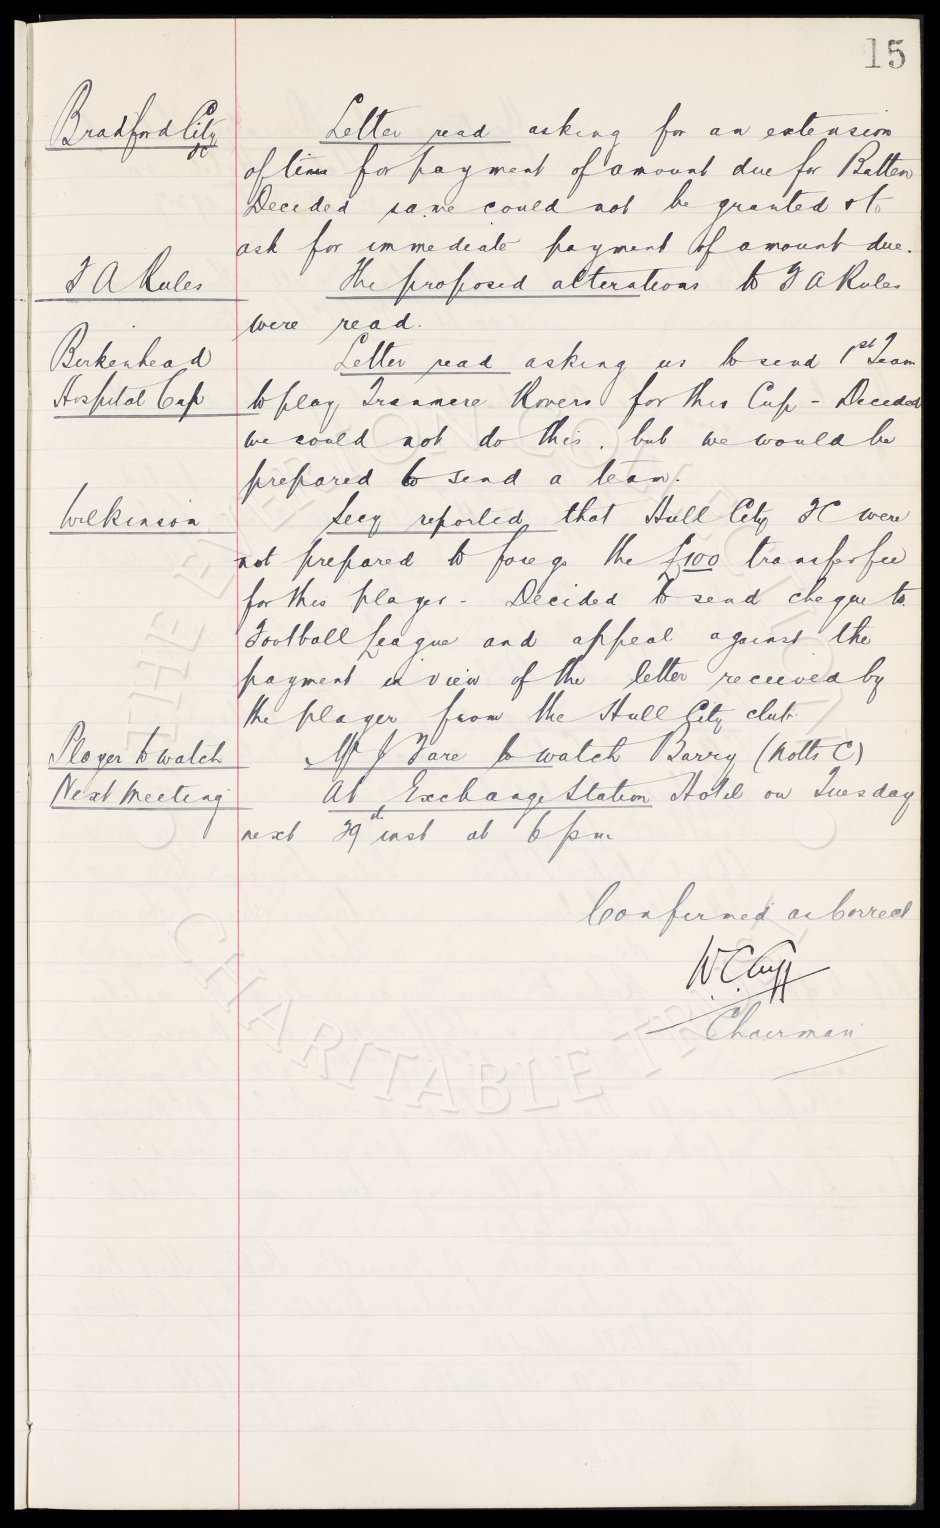 15
Bradford City Letter read asking for an extension
FC
of time for payment of amount due for Batten
Decided same could not be granted & to
ask for immediate payment of amount due.
F A Rules The proposed alterations to F A Rules
were read.
Birkenhead Letter read asking us to send 1st Team
Hospital Cup to play Tranmere Rovers for this Cup - Decided
we could not do this, but we would be
prepared to send a team.
Wilkinson Secy reported that Hull City FC were
not prepared to forego the £100 transfer fee
for this player - Decided to send cheque to
Football League and appeal against the
payment in view of the letter received by
the player from the Hull City club.
Player to watch Mr J Fare to watch Barry (Notts C)
Next Meeting At Exchange Station Hotel on Tuesday
next 29th inst at 6 pm
Confirmed as Correct
W.C. Cuff
Chairman
THE EVERTON COLLECTION
CHARITABLE TRUST